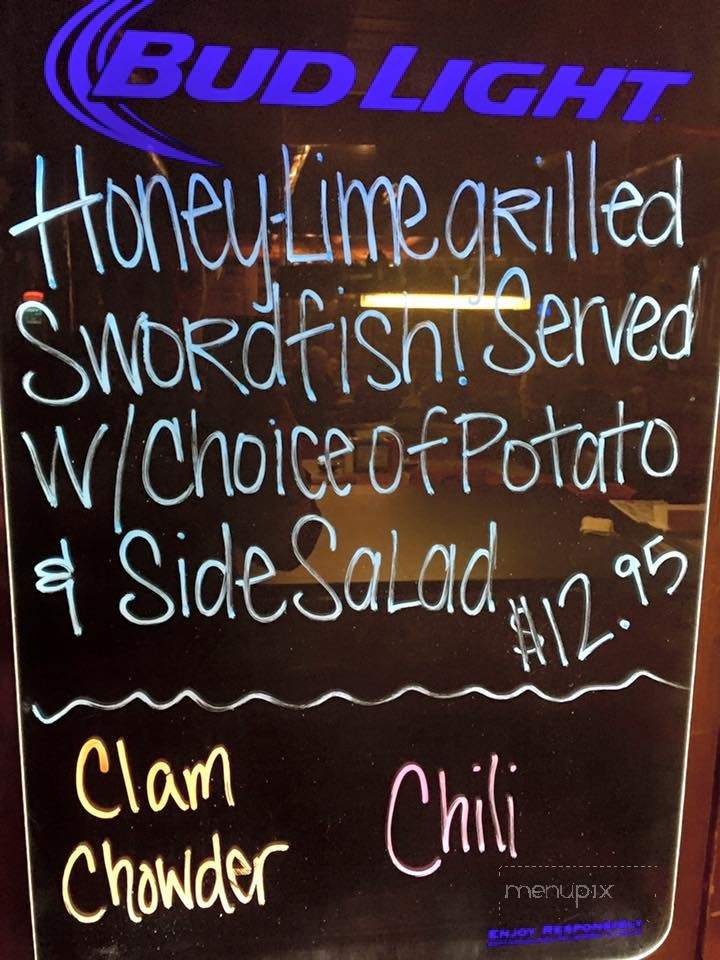 BUD LIGHT
Honey-Lime grilled
Swordfish! Served
W/Choice of Potato
& Side Salad
$12.95
Clam
Chowder
Chili
menupix
ENJOY RESPONSIBLY